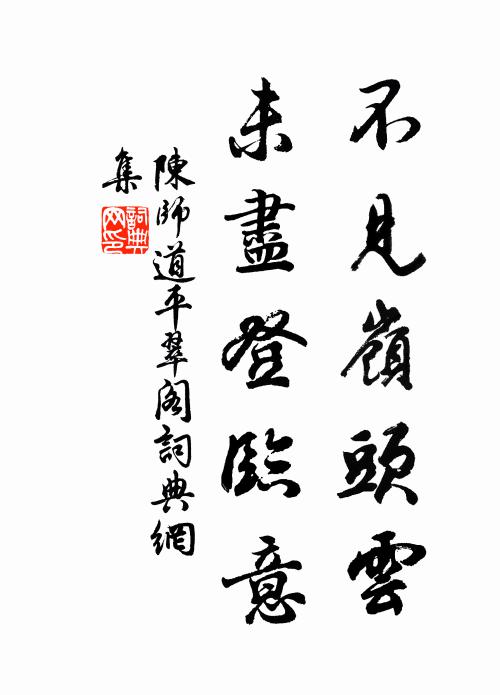 不見嶺頭雲
未盡登臨意
陳師道平翠閣詞典網
集
詞典網印